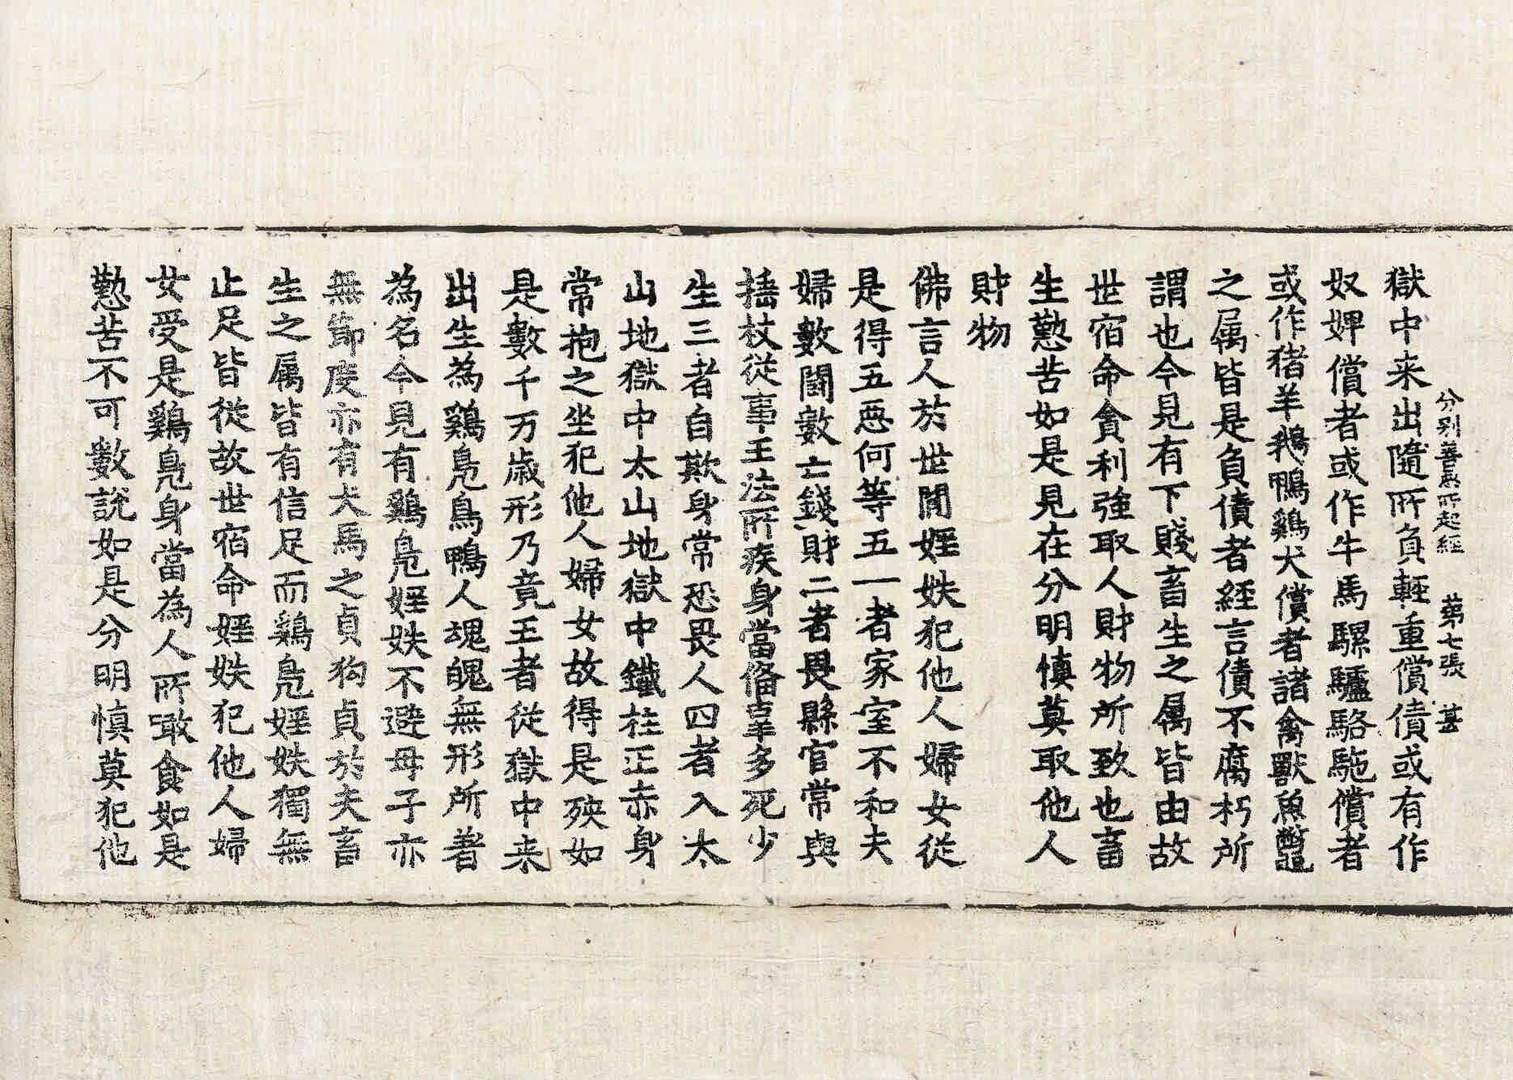 分别善惡所起經　第七張　甚
獄中来出隨所負輕重償債或有作
奴婢償者或作牛馬騾驢駱駞償者
或作猪羊鵝鴨鷄犬償者諸禽獸魚鼈
之属皆是負債者經言債不腐朽所
謂也今見有下賤畜生之属皆由故
世宿命貪利強取人財物所致也畜
生懃苦如是見在分明慎莫取他人
財物
佛言人於世間婬妷犯他人婦女從
是得五惡何等五一者家室不和夫
婦數鬪數亡錢財二者畏縣官常與
捶杖從事王法所疾身當備辜多死少
生三者自欺身常恐畏人四者入太
山地獄中太山地獄中鐵柱正赤身
常抱之坐犯他人婦女故得是殃如
是數千万歳形乃竟五者從獄中来
出生為鷄鳬鳥鴨人魂魄無形所著
為名今見有鷄鳬婬妷不避母子亦
無節度亦有犬馬之貞狗貞於夫畜
生之属皆有信足而鷄鳬婬妷獨無
止足皆從故世宿命婬妷犯他人婦
女受是鷄鳬身當為人所噉食如是
懃苦不可數說如是分明慎莫犯他